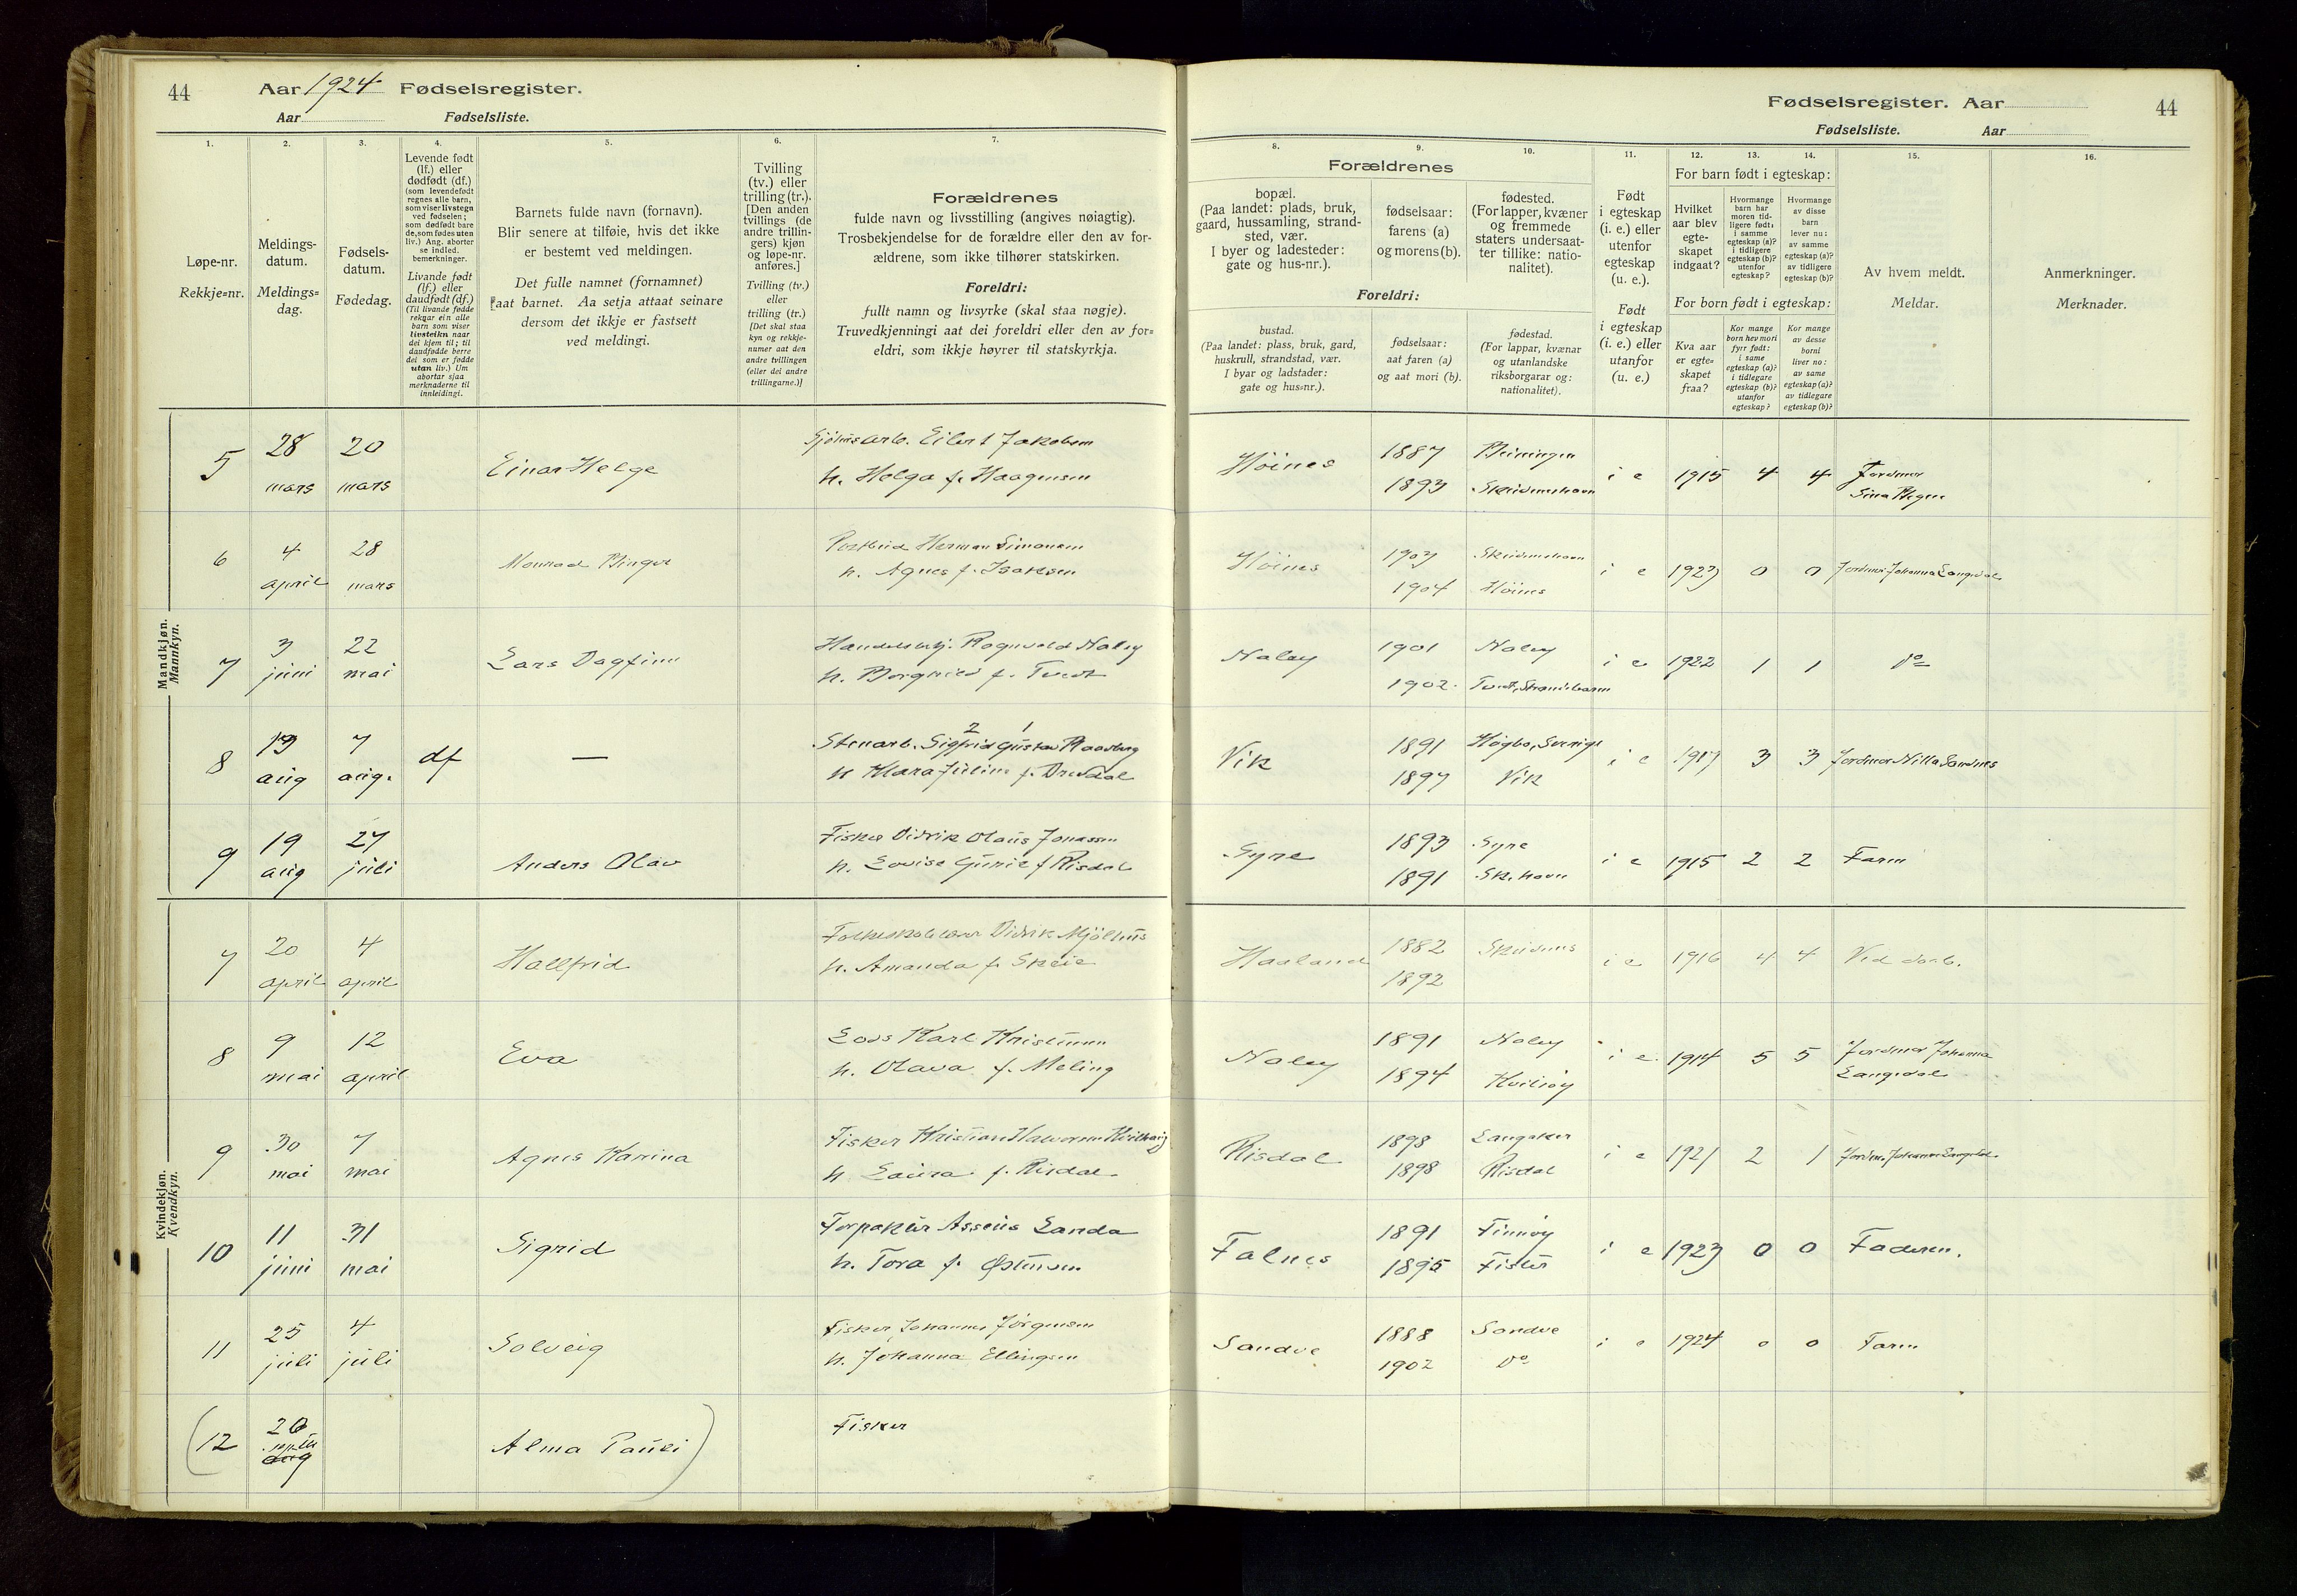 44
Aar 1924 Fødselsregister.
Aar Fødselsliste.
Fødselsregister. Aar
Fødselsliste. Aar
44
1. 2. 3. 4. 5. 6. 7.
Løpe-nr.
Rekkje=nr.
Meldings-
datum.
Meldings=
dag.
Fødsels-
datum.
Fødedag.
Levende født
(lf.) eller
dødfødt (df.)
(som levendefødt
regnes alle barn,
som viser livstegn
ved fødselen;
som dødfødt bare
de, som fødes uten
liv.) Ang. aborter
se indled.
bemerkninger.
Livande født
(lf.) eller
daudfødt (df.)
(Til livande fødde
reknar ein alle
barn som viser
livsteikn naar
dei kjem til; til
daudfødde berre
dei som er fødde
utan liv.) Um
abortar sjaa
merknaderne til
innleidingi.
Barnets fulde navn (fornavn).
Blir senere at tilføie, hvis det ikke
er bestemt ved meldingen.
Det fulle namnet (fornamnet)
aat barnet. Aa setja attaat seinare
dersom det ikkje er fastsett
ved meldingi.
Tvilling
(tv.) eller
trilling (tr.).
[Den anden
tvillings (de
andre trillin-
gers) kjøn
og løpe-nr.
anføres.]
Tvilling (tv.)
eller
trilling (tr.)
[Det skal staa
kyn og rekkje-
numer aat den
andre tvillingen
(eller dei andre
trillingarne.)]
Forældrenes
fulde navn og livsstilling (angives nøiagtig).
Trosbekjendelse for de forældre eller den av for-
ældrene, som ikke tilhører statskirken.
Foreldri:
fullt namn og livsyrke (skal staa nøgje).
Truvedkjenningi aat dei foreldri eller den av for=
eldri, som ikkje høyrer til statskyrkja.
8. 9. 10. 11. 12. 13. 14. 15. 16.
Forældrenes
bopæl.
(Paa landet: plads, bruk,
gaard, hussamling, strand-
sted, vær.
I byer og ladesteder:
gate og hus-nr.).
fødselsaar:
farens (a)
og morens (b).
fødested.
(For lapper, kvæner
og fremmede
staters undersaat-
ter tillike: natio-
nalitet).
Foreldri:
bustad.
(Paa landet: plass, bruk, gard,
huskrull, strandstad, vær.
I byar og ladstader:
gate og hus=nr.).
fødselsaar:
aat faren (a)
og aat mori (b).
fødestad.
(For lappar, kvænar
og utanlandske
riksborgarar og:
nationalitet).
Født
i egteskap
(i. e.) eller
utenfor
egteskap
(u. e.).
Født
i egteskap
(i. e.) eller
utanfor
(u. e.)
For barn født i egteskap:
Hvilket
aar blev
egte-
skapet
indgaat?
Hvormange
barn har
moren tid-
ligere født:
i samme
egteskap (a)?
i tidligere
egteskap (b)?
utenfor
egteskap?
Hvormange
av disse
barn
lever nu:
av samme
egteskap (a)?
av tidligere
egteskap (b)?
For born født i egteskap:
Kva aar
er egte=
skapet
fraa?
Kor mange
born hev mori
fyrr født:
i same
egteskap (a)?
i tidlegare
egteskap (b)?
utanfor
egteskap?
Kor mange
av desse
borni
liver no:
av same
egteskap (a)?
av tidlegare
egteskap (b)?
Av hvem meldt.
Meldar.
Anmerkninger.
Merknader.
Mandkjøn.
Mannkyn.
5 28 mars 20 mars Einar Helge
Eilert Jakobsen
h. Helga f. Haagensen
Høines 1887 1893 Skudeneshavn i e 1915 4 4 Jordmor
6 4 april 28 mars Monrad Birger
Postbud Herman Simonsen
h. Agnes f. Isaksen
Høines 1903 Skudeneshavn 1904 Høines i e 1923 0 0 Jordmor Johanna Langedal
7 3 juni 22 mai Lars Dagfinn
Handelsbtj. Ragnvald Naley
h. Borghild f. Tvedt
Naley 1901 Naley 1902 Tvedt, Strandebarm i e 1922 1 1 Do
8 19 aug 7 aug. df —
2 1
Stenarb. Sigfrid Gustav Raasberg
h Klara Juline f. Dredal
Vik 1891 Høgbo, Sverige 1897 Vik i e 1917 3 3 Jordmor Nilla Sandnes
9 19 aug 27 juli Anders Olav
Fisker Didrik Olaus Jonassen
h. Lovise Gurie f Risdal
Syre 1893 Syre 1891 Sk.havn i e 1915 2 2 Farm
Kvindekjøn.
Kvendkyn.
7 20 april 4 april Hallfrid
Folkeskolelærer Didrik Mjölhus
h. Amanda f. Skeie
Haaland 1882 Skudenes 1892 i e 1916 4 4 Ved daab.
8 9 mai 12 april Eva
Lods Karl Kristensen
h. Olava f. Meling
Naley 1891 Naley 1894 Kvilhøy i e 1914 5 5 Jordmor Johanna
Langedal
9 30 mai 7 mai Agnes Karina
Fisker Kristian Halvorsen Kvilhaug
h Laura f. Risdal
Risdal 1898 Langaker 1898 Risdal i e 1921 2 1 Jordm. Johanna Langedal
10 11 juni 31 mai Sigrid
Forpakter Asseus Landa
h. Tora f. Østensen
Falnes 1891 Finnøy 1895 Fister i e 1923 0 0 Faderen.
11 25 juli 4 juli Solveig
Fisker Johannes Jörgensen
h. Johanna Ellingsen
Sandve 1888 Sandve 1902 Do i e 1924 0 0 Farm
(12 20 septbr aug Alma Pauli)
Fisker